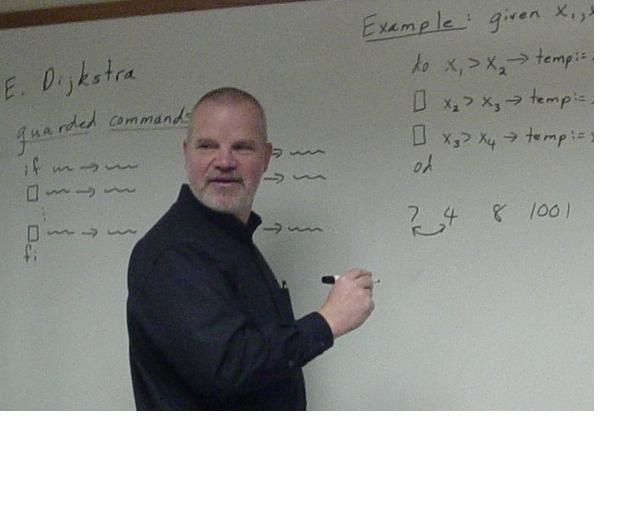 E. Dijkstra
guarded command
if → 
▯ →
⋮
▯ →
fi
→
→
→
Example: given x₁,
do x₁ > x₂ → temp:=
▯ x₂ > x₃ → temp:=
▯ x₃ > x₄ → temp:=
od
7 4 8 1001